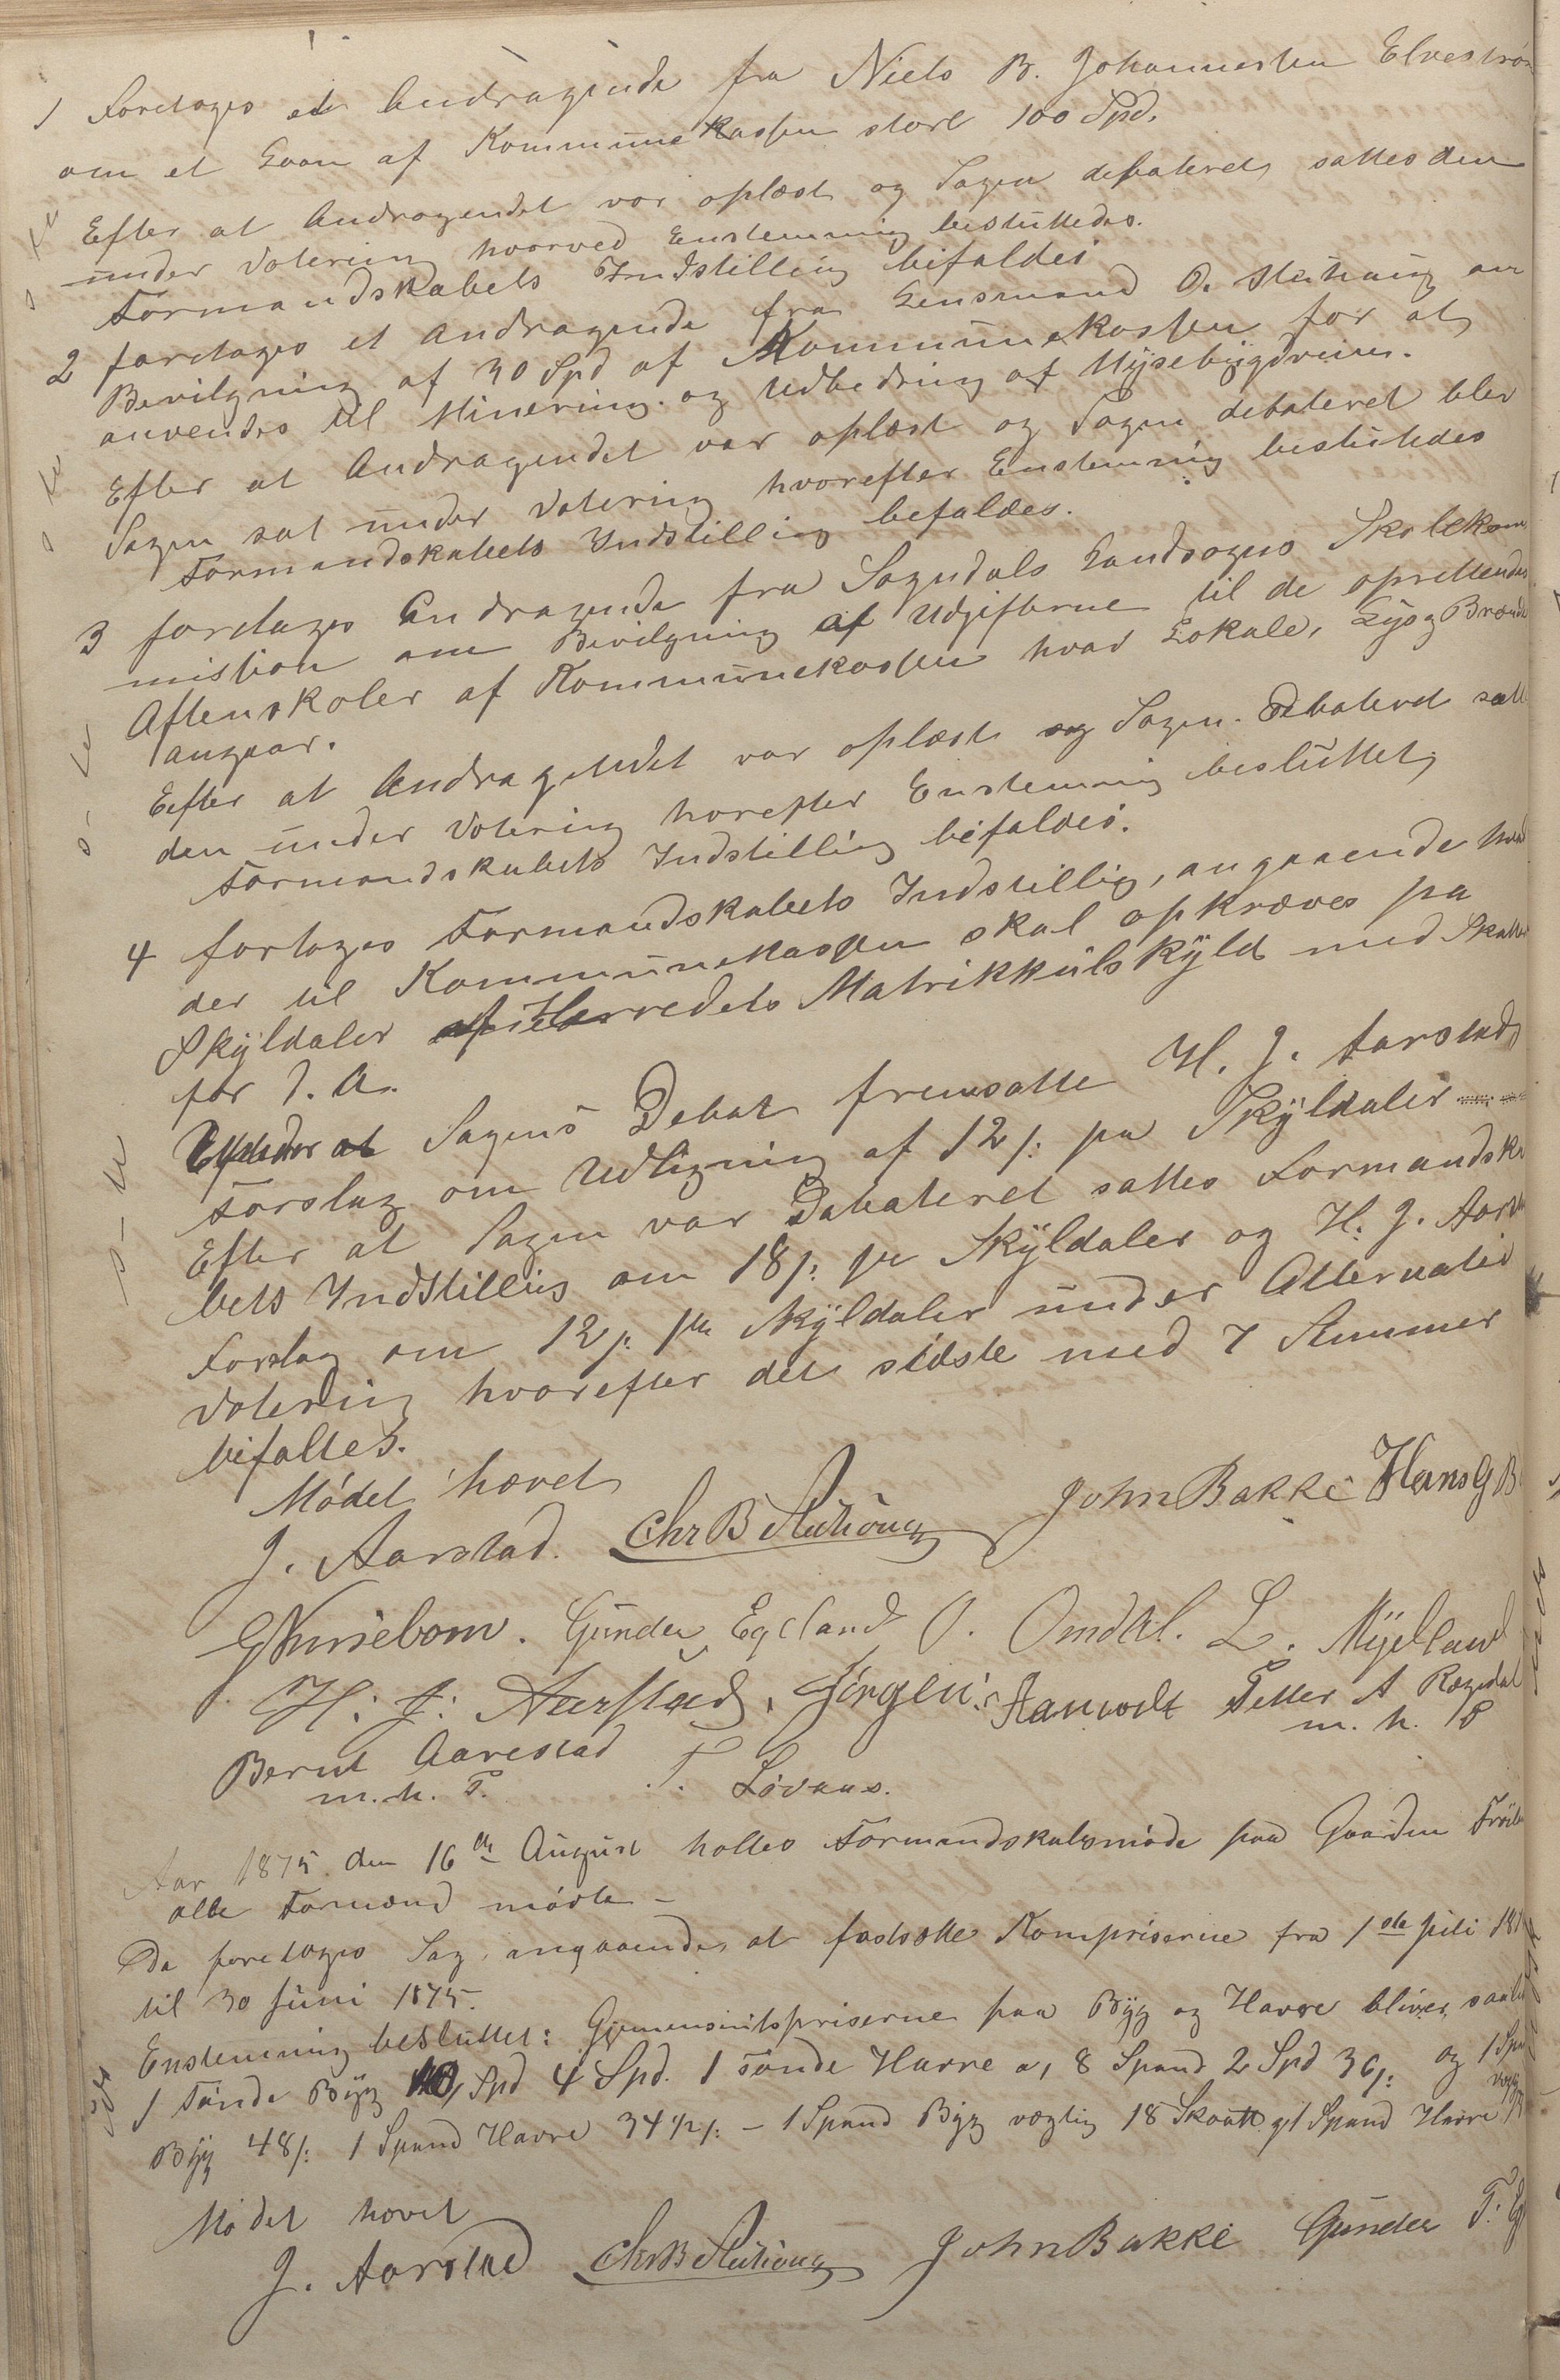 1 Foretoges et Andragende fra Niels B. Johannesen Elvestrø
om et Laan af Kommunekassen stort 100 Spd.
Efter at Andragendet var oplæst og Sagen debateret sattes den
under Votering hvorved Enstemmig besluttedes.
Formandskabets Indstilling bifaldes
2 foretoges et Andragende fra Lensmand O. Stuhaug om
Bevilgning af 30 Spd af Kommunekassen for at
anvendes til Minering og Udbedring af Mysebygdveien.
Efter at Andragendet var oplæst og Sagen debateret blev
Sagen sat under Votering hvorefter Enstemmig besluttedes
Formandskabets Indstilling befaldes.
3 foretoges Andragende fra Sogndals Landsogns Skolekom
mission om Bevilgning af Udgifterne til de oprettendes
Aftenskoler af Kommunekassen hvad Lokale, Lys og Brænde
angaar.
Eefter at Andragendet var oplæst og Sagen Debateret satt
den under Votering horefter Enstemmig besluttet,
Formandskabets Indstilling bifaldes.
4 fortoges Formandskabets Indstillig, angaaende hvad
der til Kommunekassen skal opkræves pa
Skyldaler af Herredets Matrikkulskyld med Skatte
for d. A.
Under Sagens Debat fremsatte H. J. Aarstad
Forslag om Udligning af 12 s: pa Skyldaler
Efter at Sagen var Debateret sattes Formandska
bets Indstilling om 18 s: pr Skyldaler og H. J. Aars
Forslag om 12 s: pr Skyldaler under Alternativ
Votering hvorefter det sidste med 7 Stemmer
bifaltes.
Mødet hævet
J. Aarstad. Chr B Stuhoug John Bakke Hans G B
Gunder Egeland O. Omdal. L. Mydland
H. J. Aarstad, Jørgen Aanvodt Petter A Rægedal
m. h. P
Bernt Aarestad T. Løvaas.
m. h. P.
Aar 1875 den 16de August holtes Formandskabsmøde paa Gaarden Frøi
alle Formænd mødte —
Da foretoges Sag, angaaende at fastsætte Kornpriserne fra 1ste juli 18
til 30 Juni 1875.
Enstemmig besluttet: Gjennemsnitspriserne paa Byg og Havre bliver saal
1 Tønde Byg Spd 4 Spd. 1 Tønde Havre a, 8 Spand 2 Spd 36 s: og 1 Spa
Byg 48 s: 1 Spand Havre 34 1/2 s: — 1 Spand Byg vægtig 18 Skaalt og 1 Spand Havre
Mødet hævet
J. Aarstad Chr B Stuhoug John Bakke Gunder T. Eg